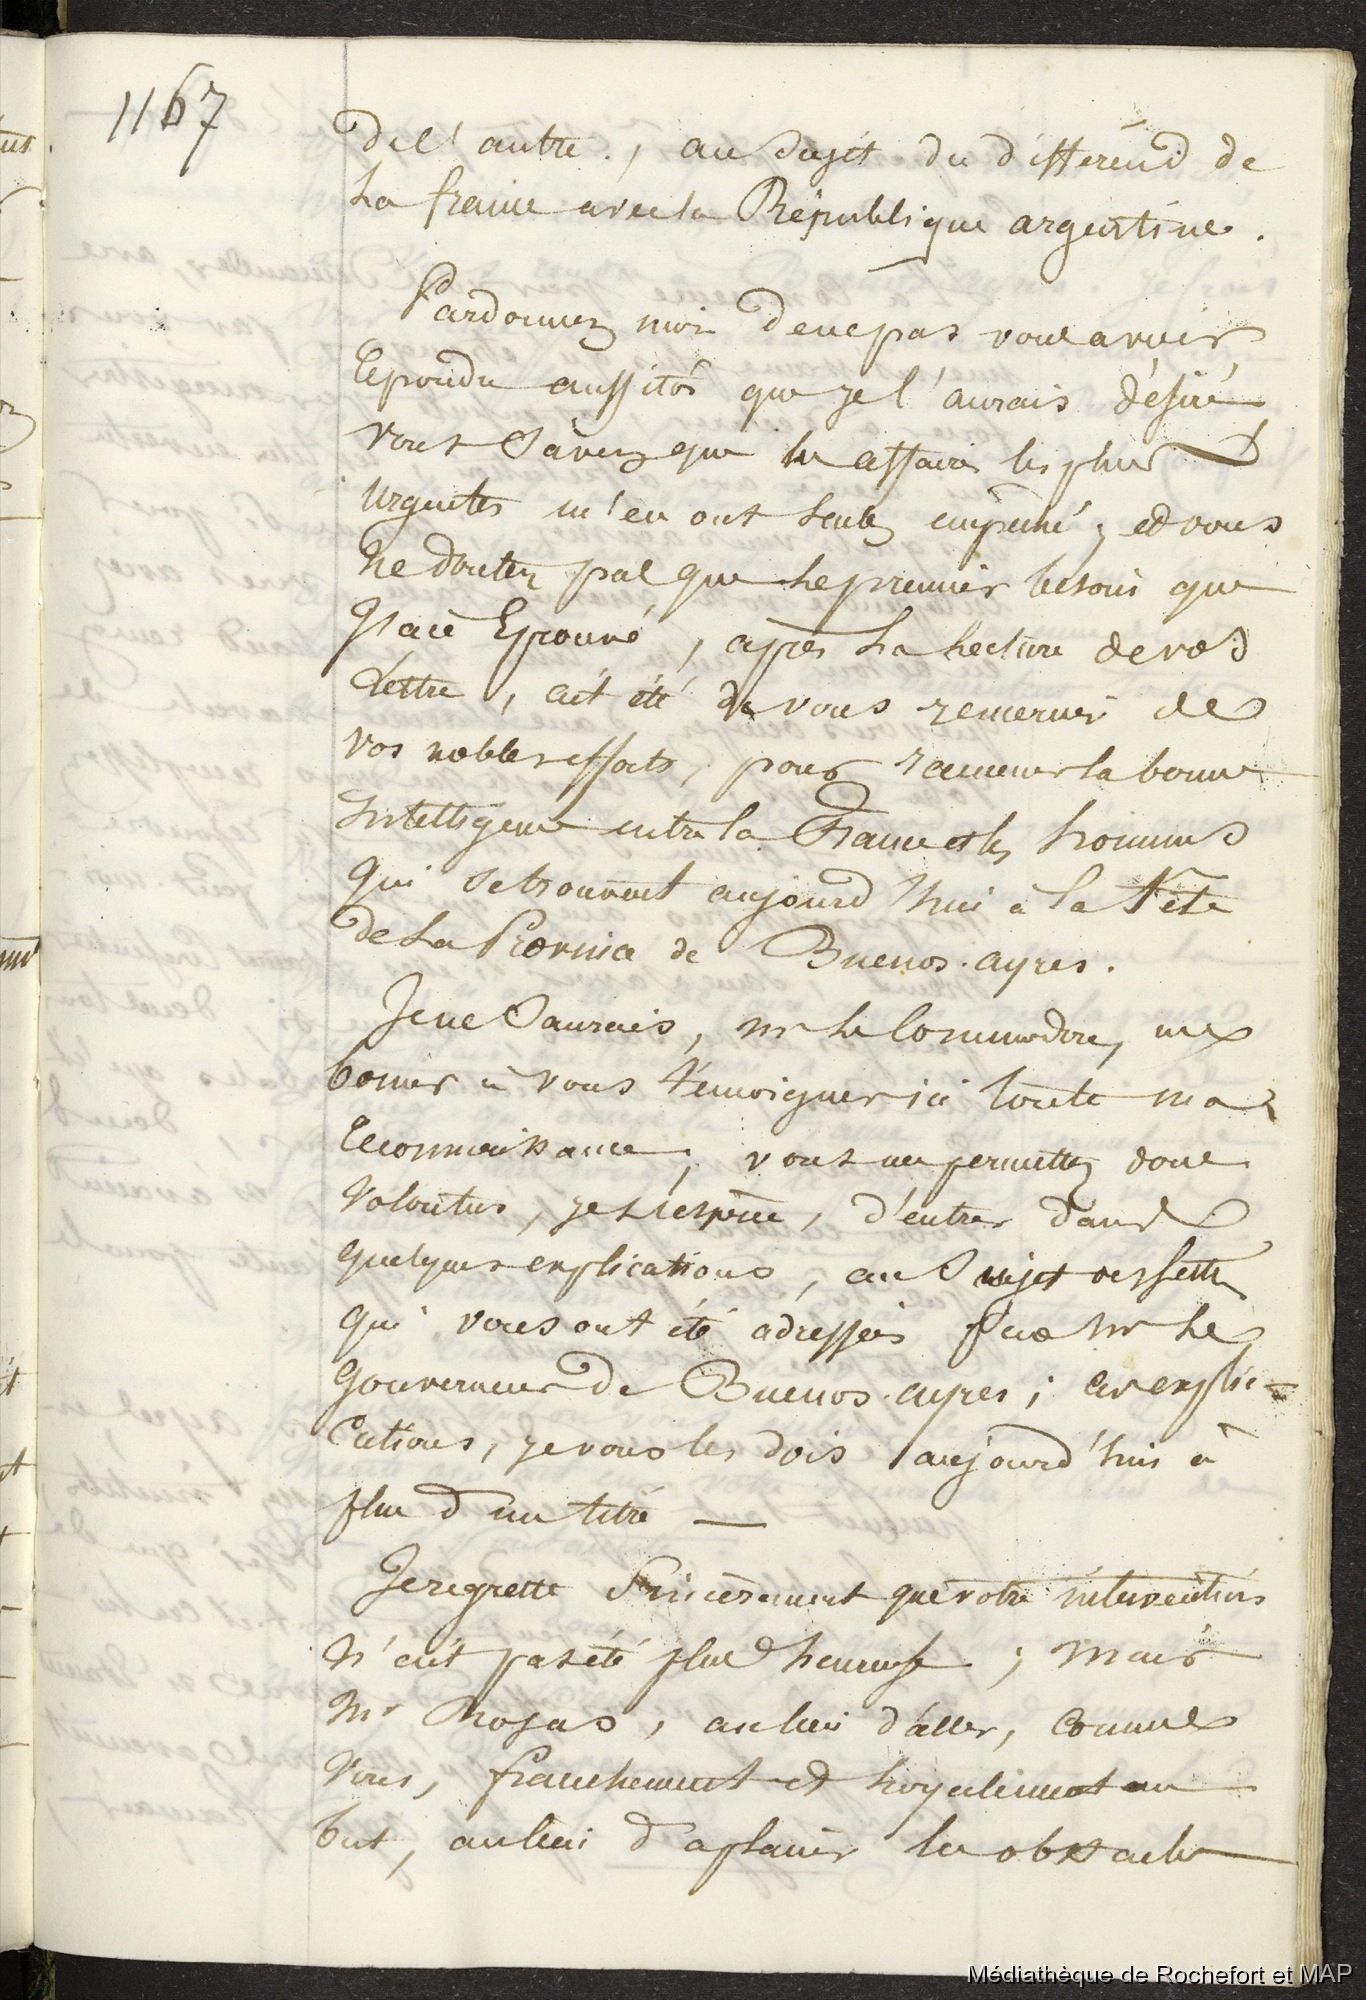 1167
del'autre., au sujet du différend de
La france avec la République argentine.
Pardonnez moi de ne pas vous avoir
Répondu aussitôt que je l'aurais désiré
vous Savez que les affaires les plus
urgentes m'en ont seules empêché ; et vous
ne doutez pas que le premier besoin que
J'aie Eprouvé, après La Lecture de vos
Lettre, ait été de vous remercier de
vos nobles efforts, pour ramener la bonne
intelligence entre la France et les hommes
qui se trouvent aujourd'hui à La Tête
de La Province de Buenos-ayres.
Je ne Saurais, mr le Commodore, me
borner à vous témoigner ici toute ma
Reconnaissance ; vous me permettez donc
volontiers, je L'espère, d'entrer dans
quelques explications, au Sujet des Lettres
qui vous ont été adressées par mr Le
Gouverneur de Buenos-ayres ; Ces expli-
cations, je vous les dois aujourd'hui à
plus d'un titre —
Je regrette sincèrement que votre intervention
n'ait pas été plus heureuse ; mais
Mr Rosas, au lieu d'aller, comme
vous, franchement et Loyalement au
but, au lieu d'aplanir les obstacles
Médiathèque de Rochefort et MAP